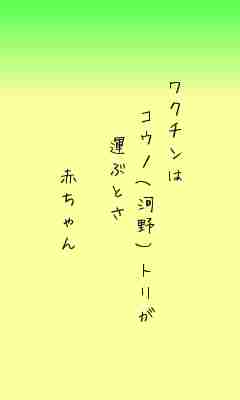 ワクチンは
コウノ(河野)トリが
運ぶとさ
赤ちゃん